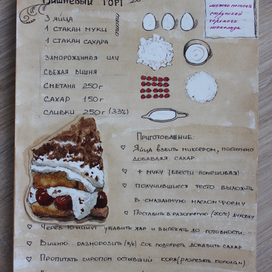 Вишнёвый торт
можно полить
растопленным
горячим
шоколадом
3 яйца
1 стакан муки
1 стакан сахара
замороженная или
свежая вишня
сметана 250г
сахар 150г
сливки 250г (33%)
Приготовление
Яйца взбить миксером, постепенно
добавляя сахар
+ муку (ввести понемногу)
получившееся тесто выложить
в смазанную маслом форму
Поставить в разогретую духовку
через 10 минут убавить жар и выпекать до готовности.
Вишню разморозить сок подогреть добавить сахар
Пропитать сиропом остывший корж